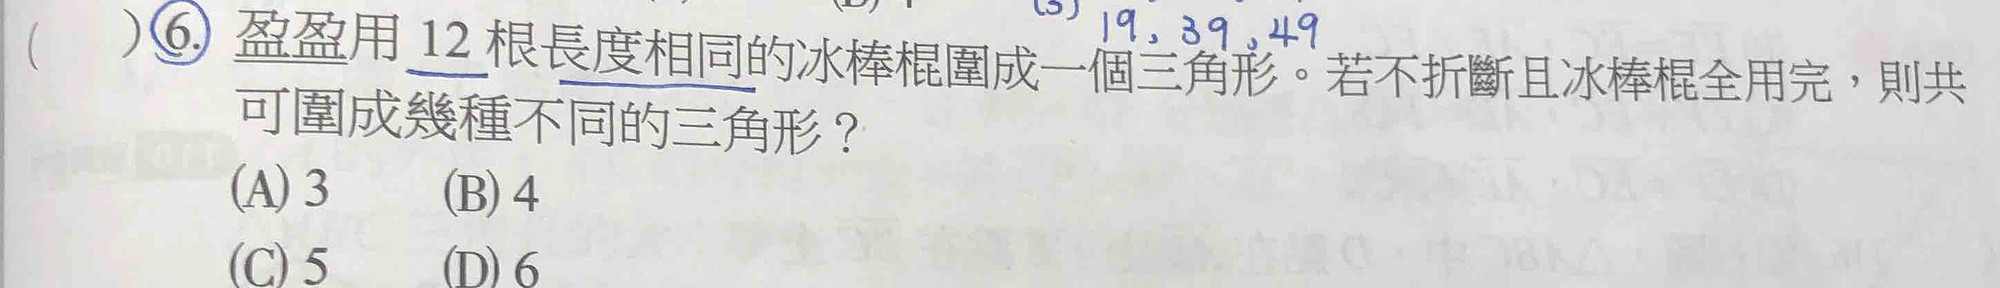 19, 39, 49
( )6. 盈盈用 12 根長度相同的冰棒棍圍成一個三角形。若不折斷且冰棒棍全用完，則共
可圍成幾種不同的三角形？
(A) 3 (B) 4
(C) 5 (D) 6